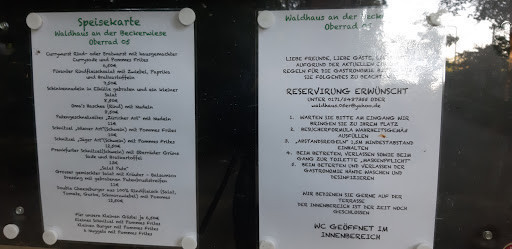 Speisekarte
Waldhaus an der Beckerwiese
Oberrad 05
Currywurst Rind- oder Bratwurst mit hausgemachter
Currysauce und Pommes Frites
Pikanter Rindfleischsalat mit Zwiebel, Paprika
und Bratkartoffeln
Schinkennudeln in Sahne gebraten und ein kleiner
Salat
Oma's Gulasch (Rind) mit Nudeln
Putengeschnetzeltes „Züricher Art" mit Nudeln
Schnitzel „Wiener Art"(Schwein) mit Pommes Frites
Schnitzel „Jäger Art"(Schwein) mit Pommes Frites
Frankfurterschnitzel(Schwein) mit Oberräder Grüne
Soße und Bratkartoffeln
„Salat Pute"
Grosser gemischter Salat mit Kräuter - Balsamico
Dressing mit gebratenen Putenbruststreifen
Double Cheeseburger aus 100% Rindfleisch (Salat,
Tomate, Gurke, Schmorzwiebel) mit Pommes Frites
Für unsere kleinen Gäste je 6,50€
Kleines Schnitzel mit Pommes Frites
Kleiner Burger mit Pommes Frites
6 Nuggets mit Pommes Frites
Waldhaus an der Beckerwiese
Oberrad 05
LIEBE FREUNDE, LIEBE GÄSTE,
AUFGRUND DER AKTUELLEN
REGELN FÜR DIE GASTRONOMIE
SIE FOLGENDES ZU BEACHTEN
RESERVIERUNG ERWÜNSCHT
UNTER ODER
1. WARTEN SIE BITTE AM EINGANG WIR
BRINGEN SIE ZU IHREM PLATZ
2. BESUCHERFORMULA WAHRHEITSGEMÄß
AUSFÜLLEN
3. „ABSTANDSREGELN" 1,5M MINDESTABSTAND
EINHALTEN
4. BEIM BETRETEN, VERLASSEN SOWIE BEIM
GANG ZUR TOILETTE „MASKENPFLICHT"
5. BEIM BETRETEN UND VERLASSEN DER
GASTRONOMIE HÄNDE WASCHEN UND
DESINFIZIEREN
WIR BEDIENEN SIE GERNE AUF DER
TERRASSE
DER INNENBEREICH IST DER ZEIT NOCH
GESCHLOSSEN
WC GEÖFFNET IM
INNENBEREICH